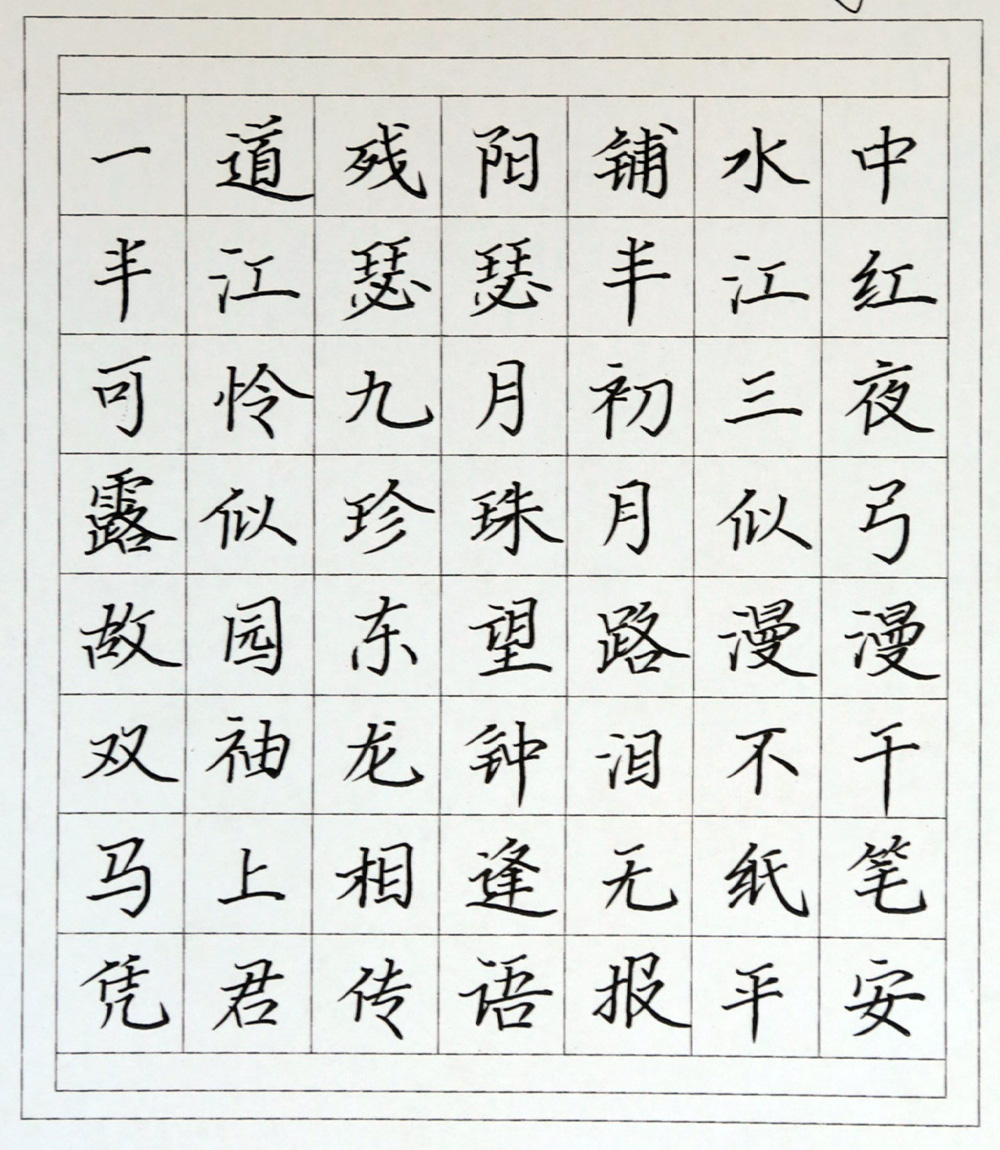 一道残阳铺水中
半江瑟瑟半江红
可怜九月初三夜
露似珍珠月似弓
故园东望路漫漫
双袖龙钟泪不干
马上相逢无纸笔
凭君传语报平安